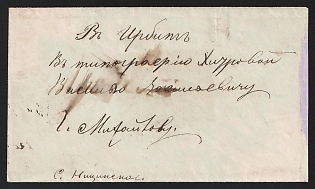 Въ Ирбитъ
Въ типографію Хитровой
Василію Васильевичу
Г. Михайлову.
С. Ницинское